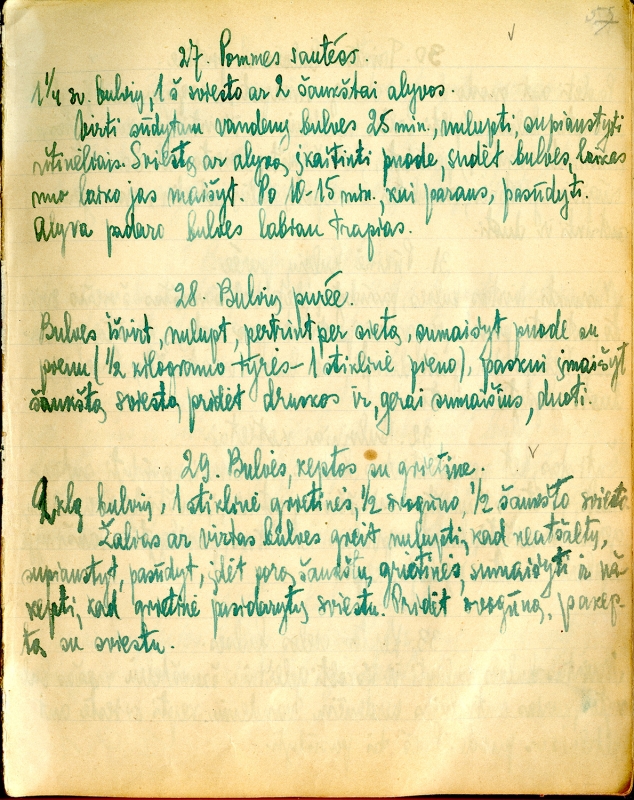 55
27. Pommes sautées.
1 1/4 sv. bulvių, 1 š sviesto ar 2 šaukštai alyvos.
Virti sūdytam vandeny bulves 25 min., nulupti, supiaustyti
ritinėliais. Sviestą ar alyvą įkaitinti puode, sudėt bulves, laikas
nuo laiko jas maišyt. Po 10-15 min., kai paraus, pasūdyti.
Alyva padaro bulves labiau trapias.
28. Bulvių purée.
Bulves išvirt, nulupt, pertrint per sietą, sumaišyt puode su
pienu (1/2 kilogramo tyrės - 1 stiklinė pieno), paskui įmaišyt
šaukštą sviesto, pridėt druskos ir, gerai sumaišius, duoti.
29. Bulvės, keptos su grietine.
2 klg bulvių, 1 stiklinė grietinės, 1/2 svogūno, 1/2 šaukšto sviesto
Žalias ar virtas bulves greit nulupti, kad neatšaltų,
supiaustyt, pasūdyt, įdėt porą šaukštų grietinės, sumaišyti ir
kepti, kad grietinė pasidarytų sviestu. Pridėt svogūną, pakep-
tą su sviestu.